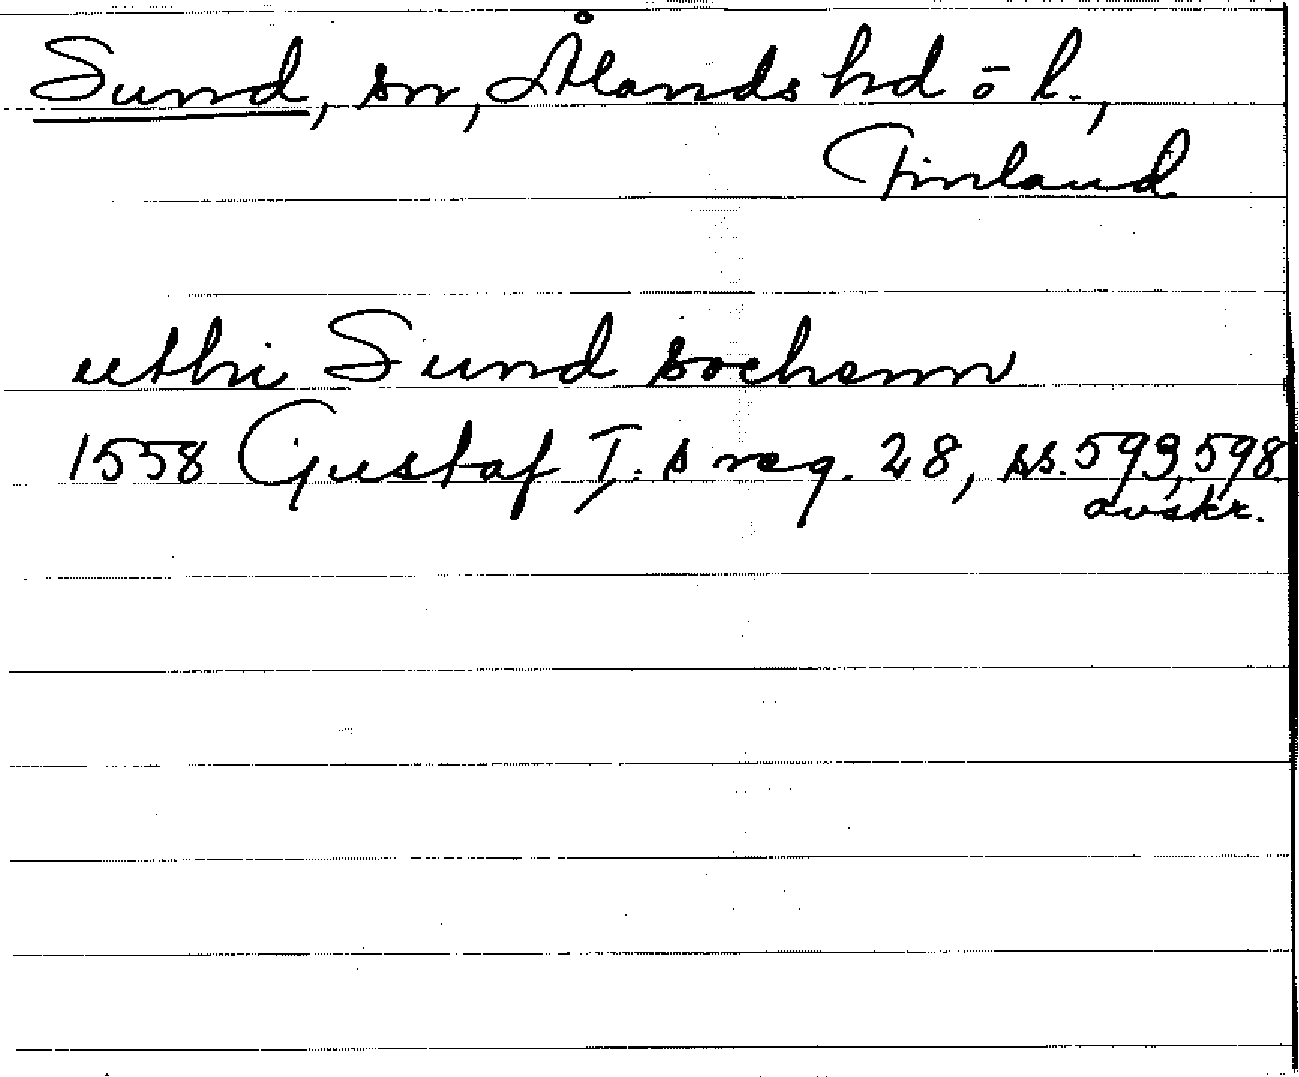 Sund, sn, Ålands hd o l.,
Finland
uthi Sund sochenn
1558 Gustaf I:s reg. 28, ss. 593, 598.
avskr.